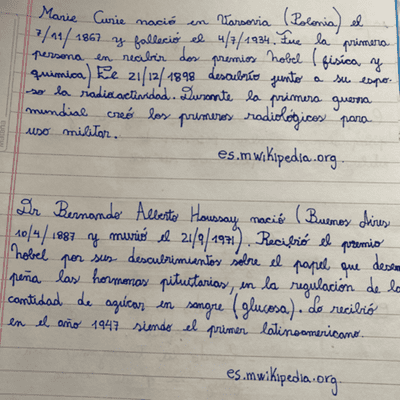 Marie Curie nació en Varsovia (Polonia) el
7/11/1867 y falleció el 4/7/1934. Fue la primera
persona en recibir dos premios nobel (física y
química) El 21/12/1898 descubrió junto a su espo-
so la radioactividad. Durante la primera guerra
mundial creó los primeros radiológicos para
uso militar.
es.mwikipedia.org.
Dr Bernando Alberto Houssay nació (Buenos Aires
10/4/1887 y murió el 21/9/1971). Recibió el premio
nobel por sus descubrimientos sobre el papel que desem
peña las hormonas pituitarias, en la regulación de la
cantidad de azúcar en sangre (glucosa). Lo recibió
en el año 1947 siendo el primer latinoamericano.
es.mwikipedia.org.